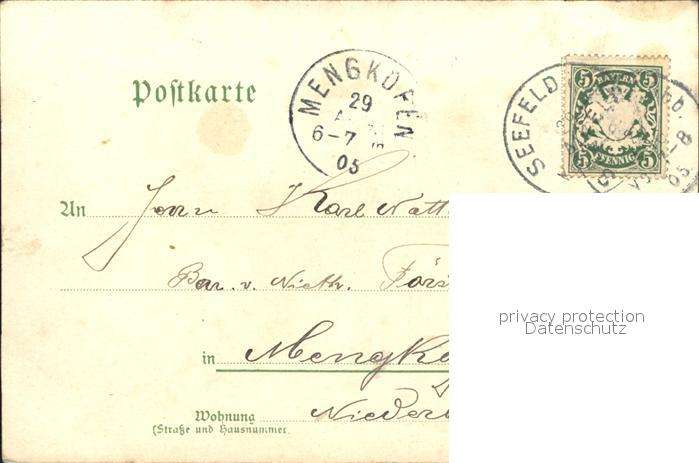 Postkarte
MENGKOFEN
29
6-7
05
SEEFELD
5 BAYERN 5
5 PFENNIG 5
An Herrn Karl
Bar. v. Förs
in Mengko
Wohnung Nieder
(Straße und Hausnummer.
privacy protection
Datenschutz